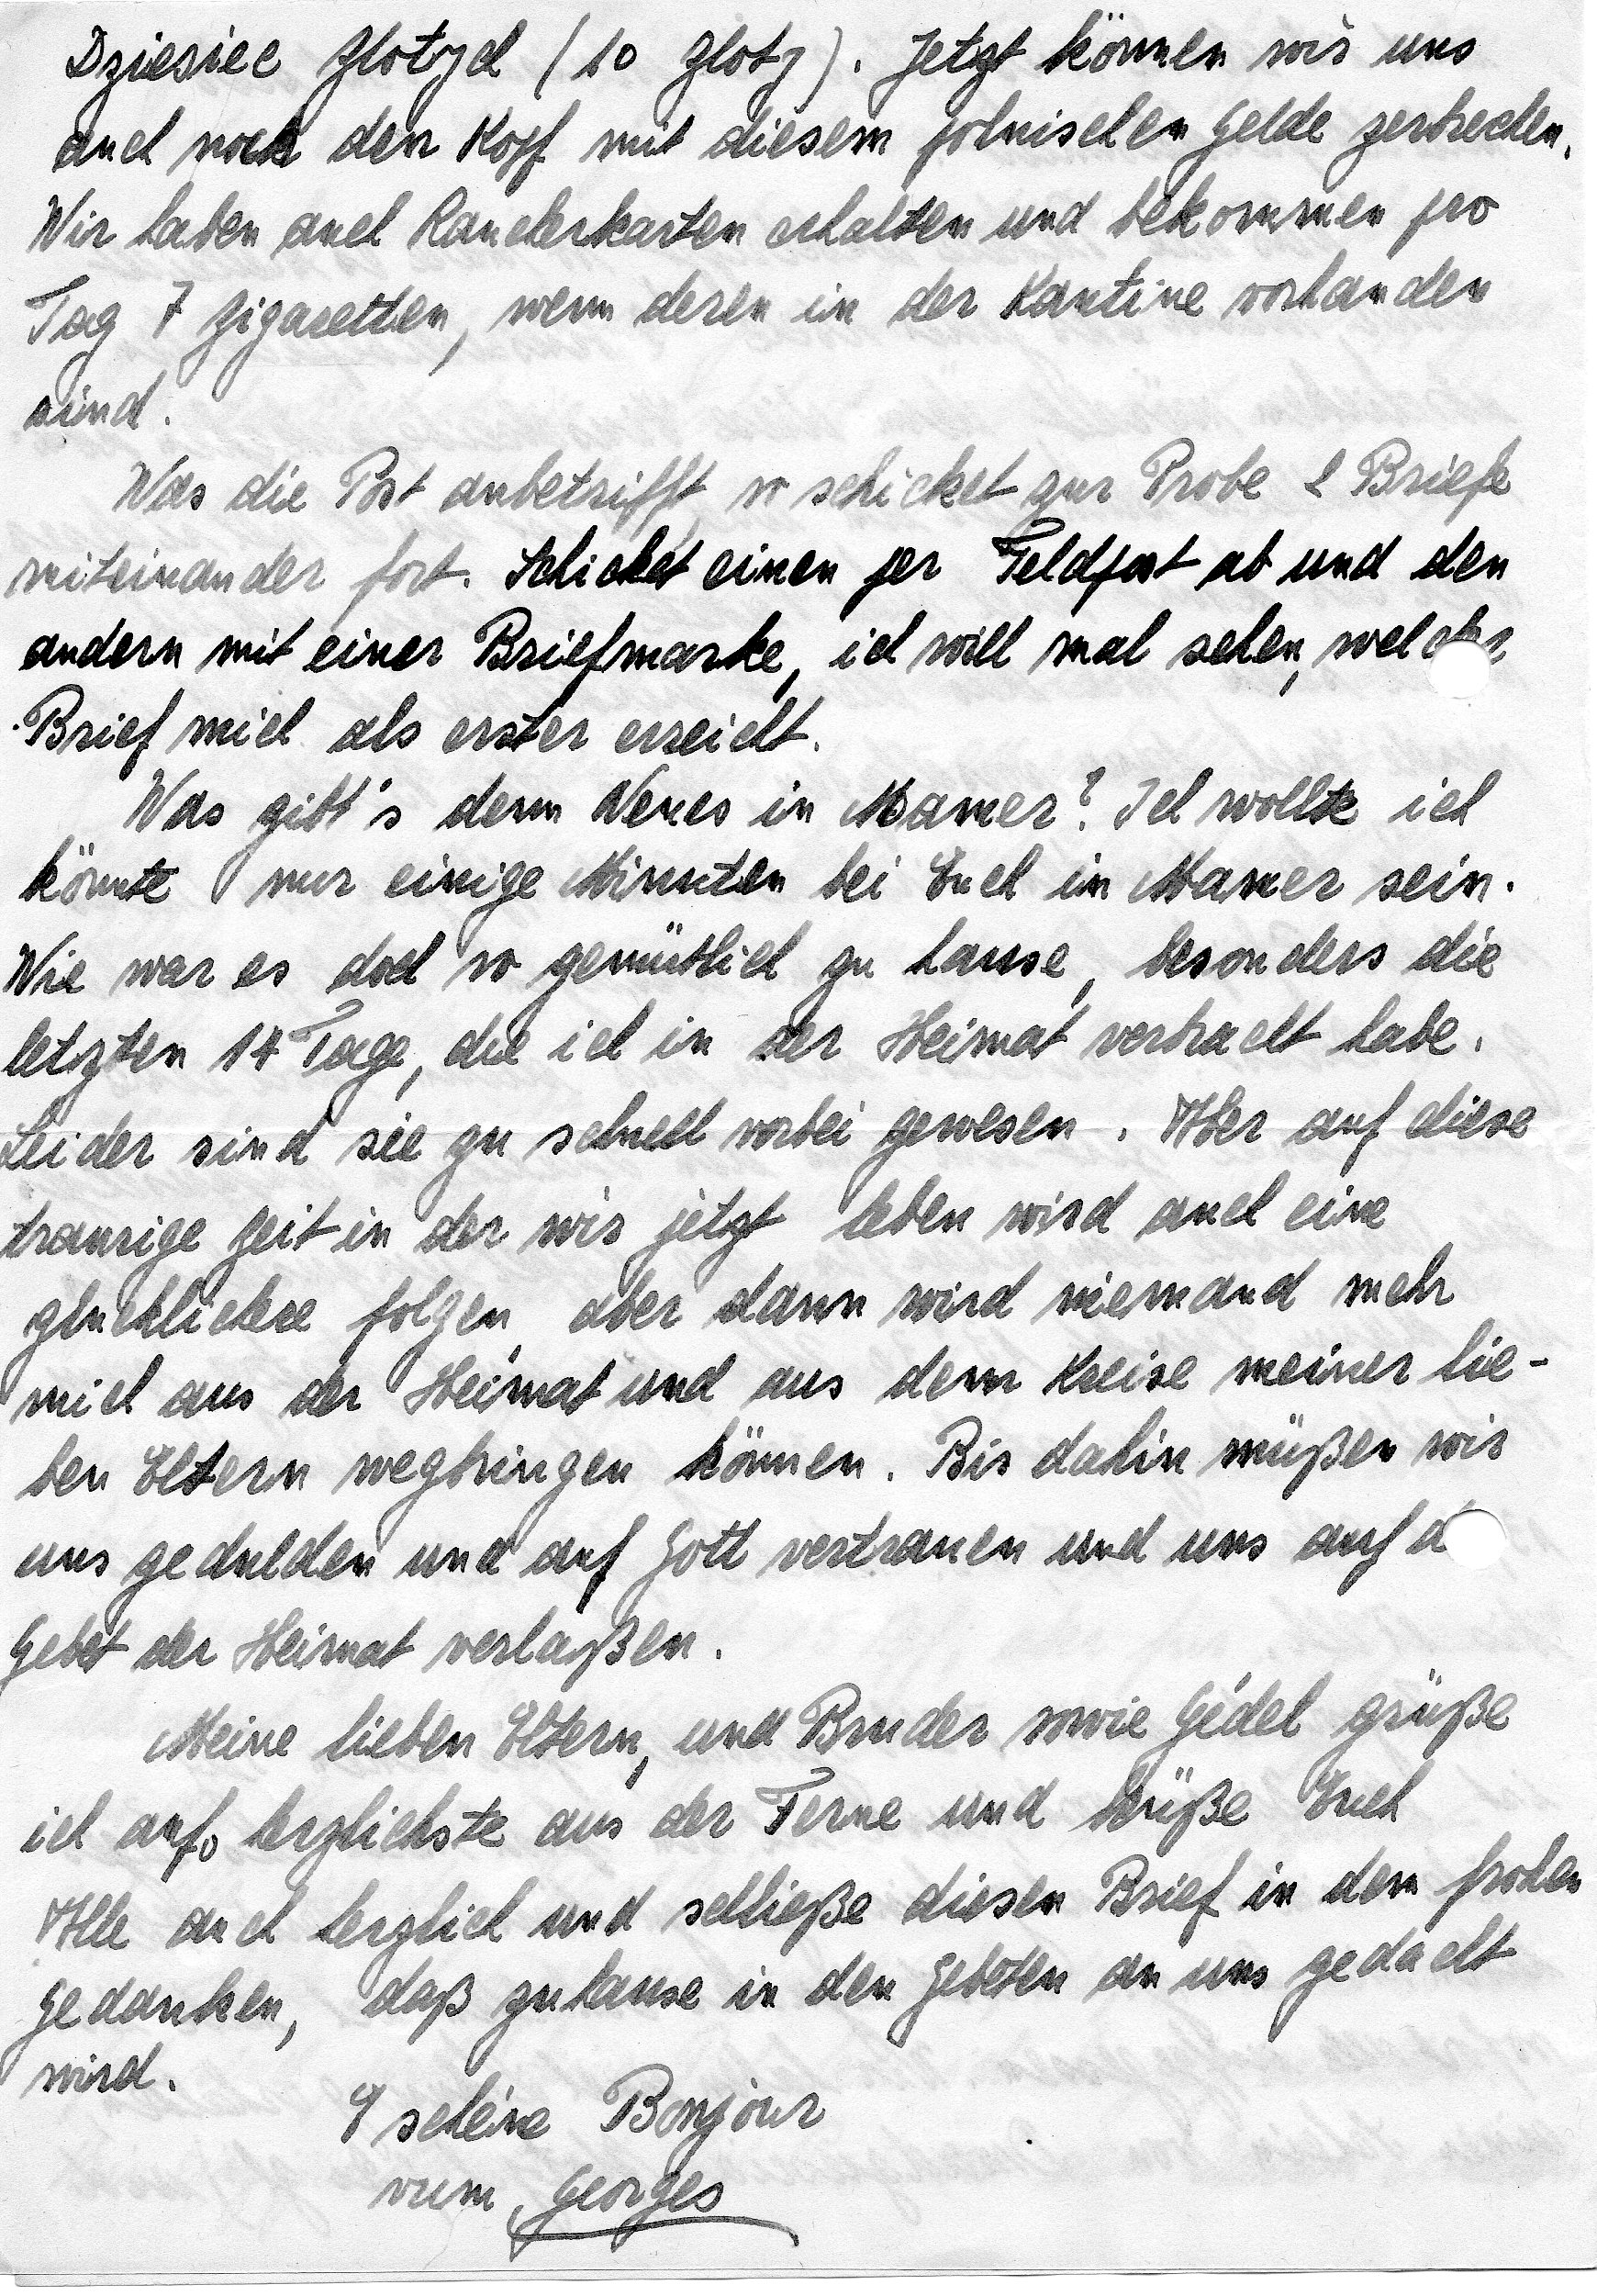 Dziesiec Zlotych (10 Zloty). Jetzt können wir uns
auch noch den Kopf mit diesem polnischen Gelde zerbrechen.
Wir haben auch Raucherkarten erhalten und bekommen pro
Tag 7 Zigaretten, wenn deren in der Kantine vorhanden
sind.
Was die Post anbetrifft, so schicket zur Probe 2 Briefe
miteinander fort. Schicket einen per Feldpost ab und den
andern mit einer Briefmarke, ich will mal sehen, welcher
Brief mich als erster erreicht.
Was gibt's denn Neues in Mamer? Ich wollte ich
könnte nur einige Minuten bei Euch in Mamer sein.
Wie war es doch so gemütlich zu hause, besonders die
letzten 14 Tage, die ich in der Heimat verbracht habe.
Leider sind sie zu schnell vorbei gewesen. Aber auf diese
traurige Zeit in der wir jetzt leben wird auch eine
glücklichere folgen, aber dann wird niemand mehr
mich aus der Heimat und aus dem Kreise meiner lie-
ben Eltern wegbringen können. Bis dahin müßen wir
uns gedulden und auf Gott vertrauen und uns auf d
Gebet der Heimat verlaßen.
Meine lieben Eltern, und Bruder sowie Gédel grüße
ich aufs herzlichste aus der Ferne und küße Euch
Alle auch herzlich und schließe diesen Brief in dem frohen
Gedanken, daß zuhause in den Gebeten an uns gedacht
wird.
E schéine Bonjour
vum Georges